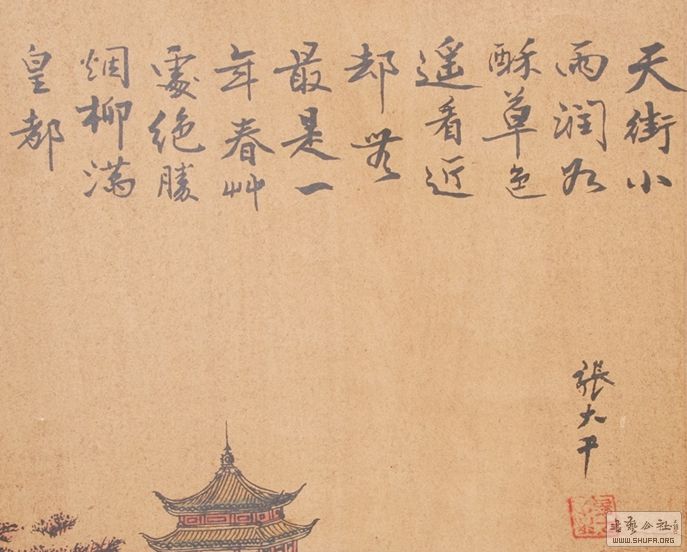 天街小
雨润如
酥草色
遥看近
却无
最是一
年春艸
處绝勝
烟柳满
皇都
張大千
书艺公社
WWW.SHUFA.ORG